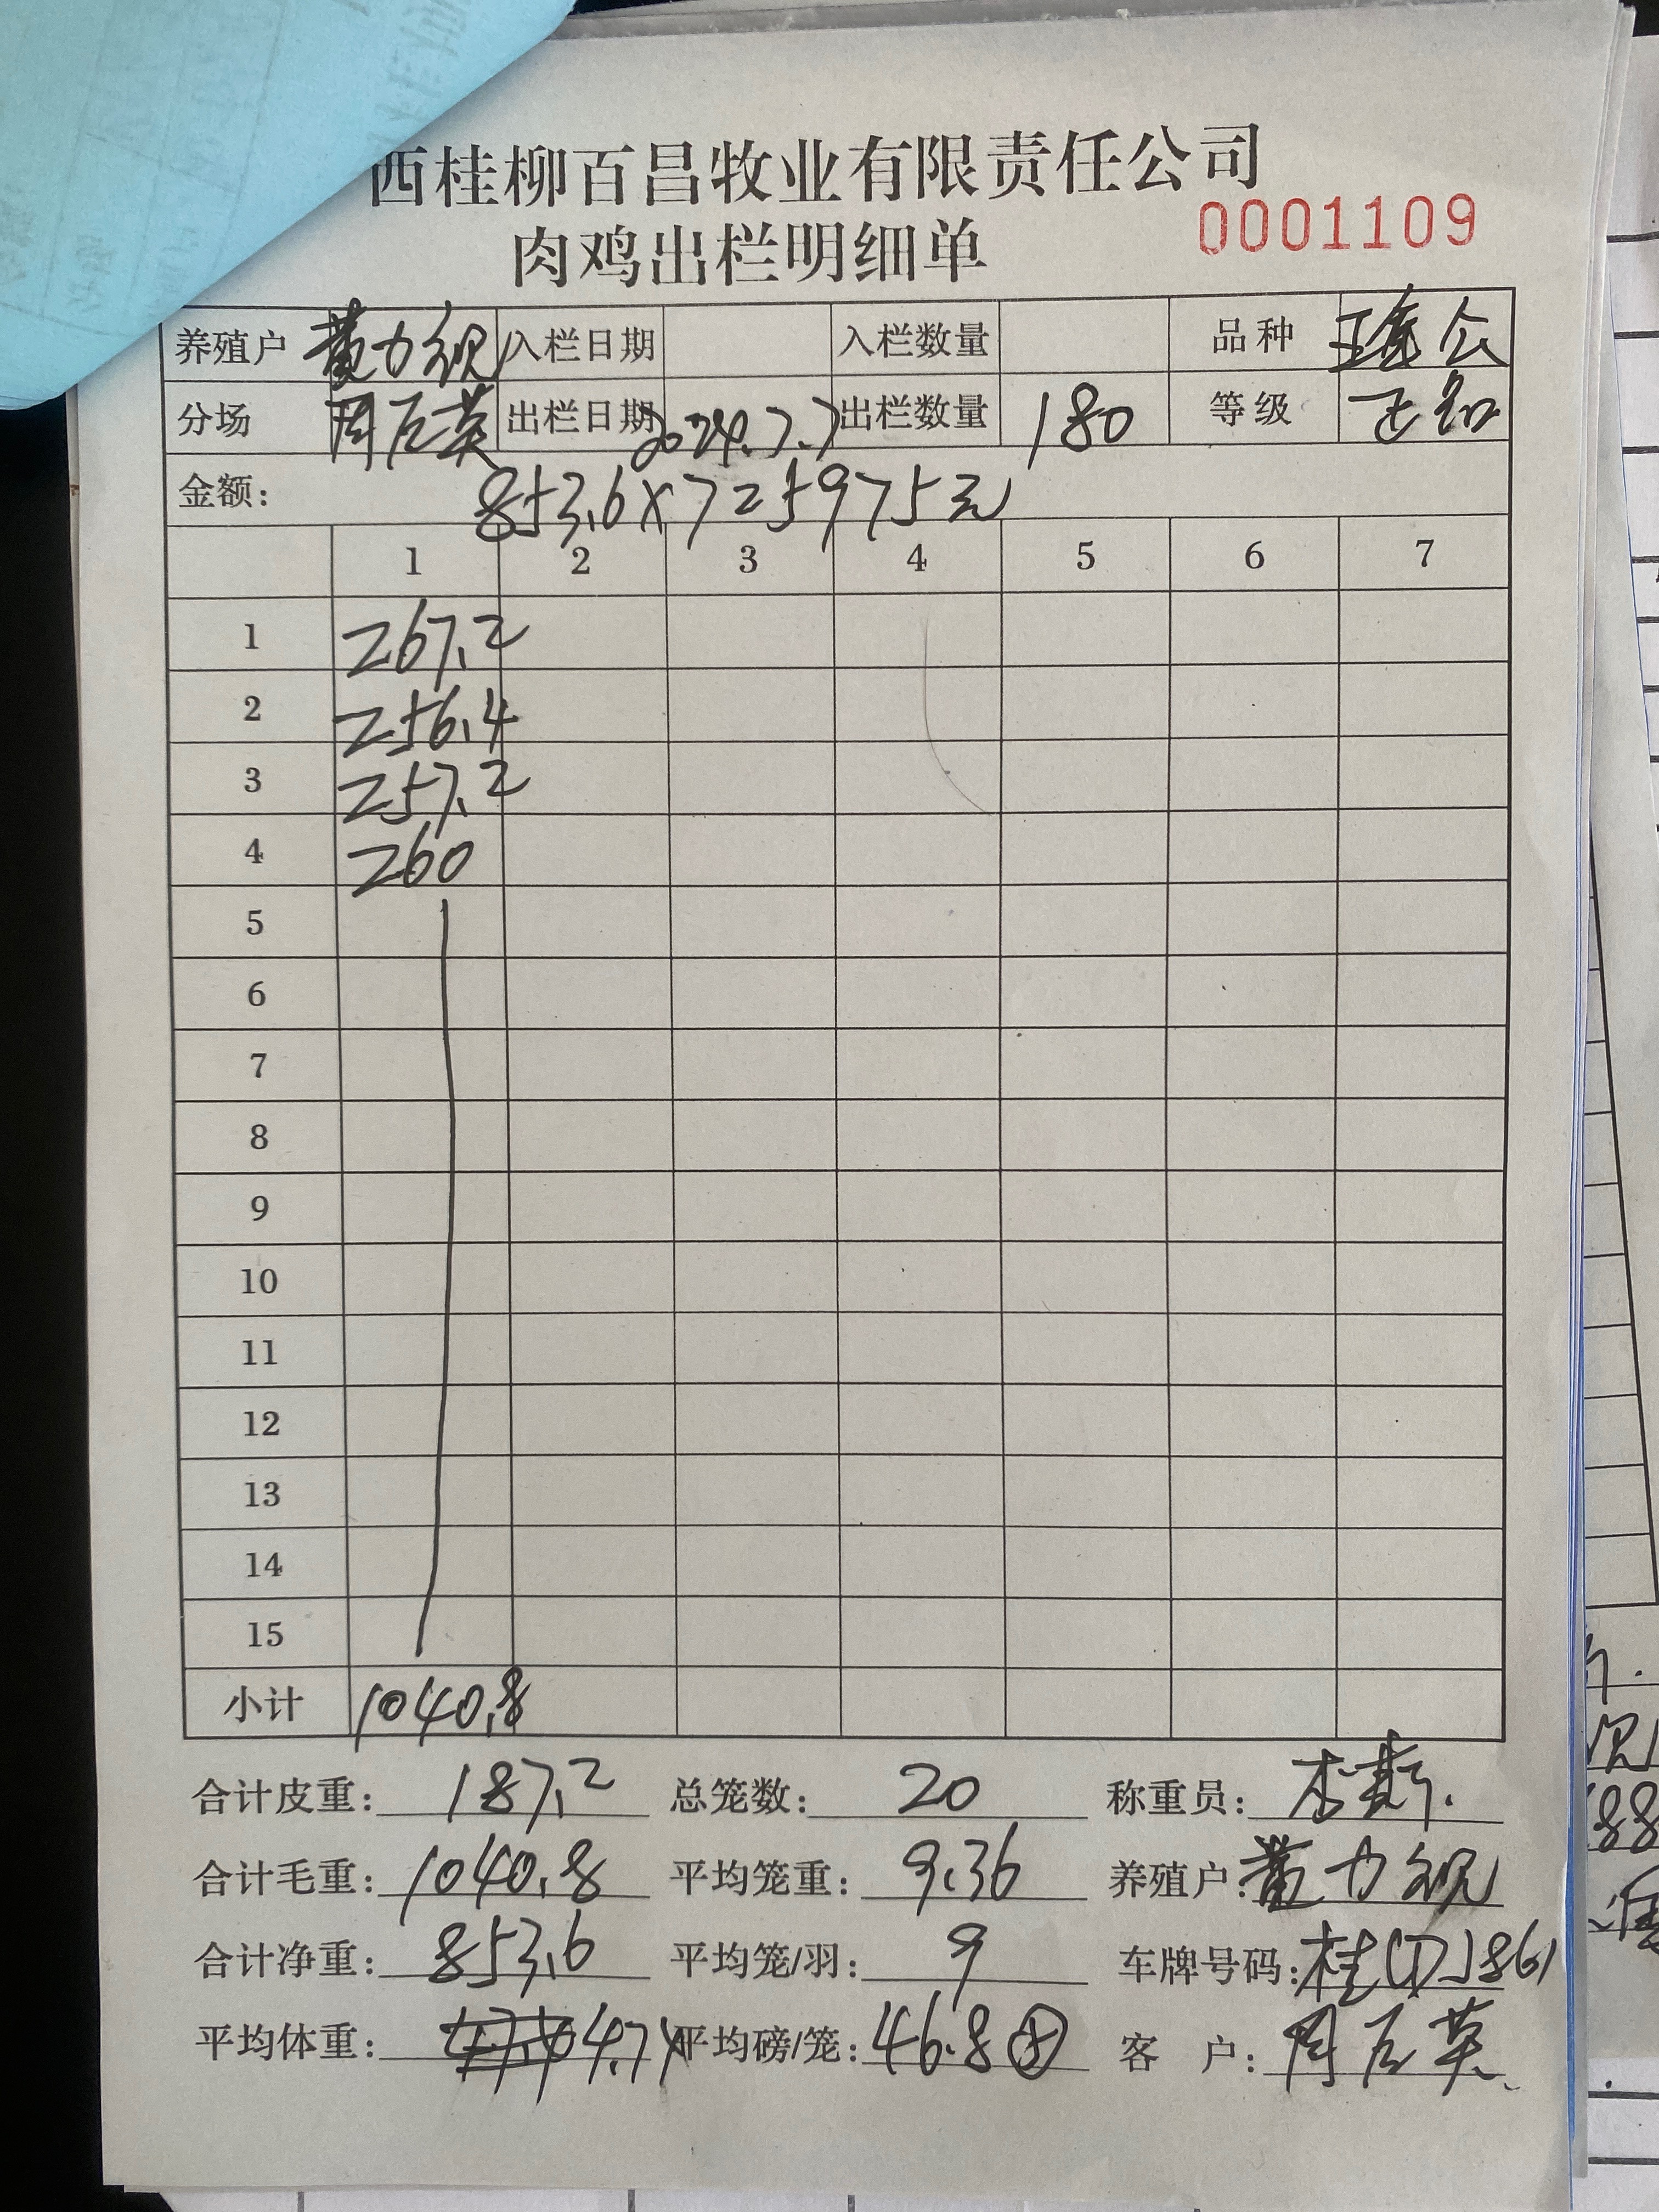 西桂柳百昌牧业有限责任公司
肉鸡出栏明细单 0001109
养殖户 黄力 入栏日期 入栏数量 品种 公
分场 周 英 出栏日期 2024.7.7 出栏数量 180 等级
金额: 853.6×7=5975元
1 2 3 4 5 6 7
1 267.2
2 256.4
3 257.2
4 260
5
6
7
8
9
10
11
12
13
14
15
小计 1040.8
合计皮重: 187.2 总笼数: 20 称重员: 李
合计毛重: 1040.8 平均笼重: 9.36 养殖户: 黄力
合计净重: 853.6 平均笼/羽: 9 车牌号码: 桂 J861
平均体重: 4.74 平均磅/笼: 46.8 客户: 周 英